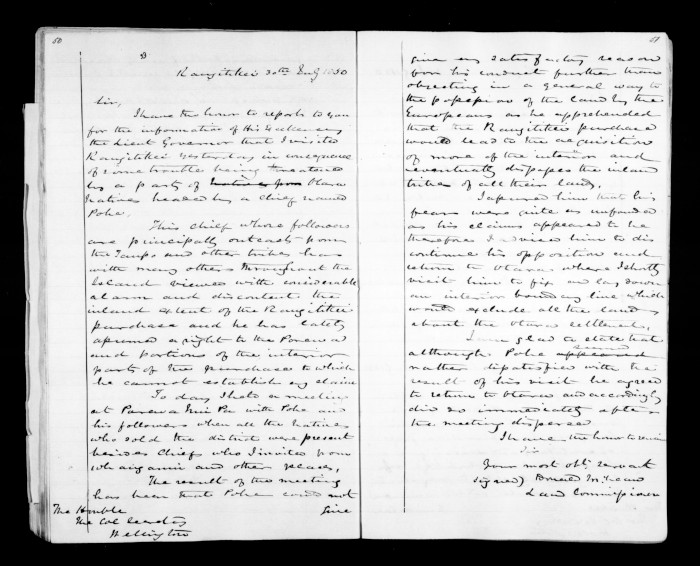 50
Rangitikei 30th July 1850
Sir,
I have the honor to report to you
for the information of His Excellency
the Lieut Governor that I visited
Rangitikei yesterday in consequence
of some trouble being threatened
by a party of Natives from Otara
natives headed by a chief named
Pohe.
This chief whose followers
are principally outcasts from
the Taupo and other tribes has
with many others throughout the
Island viewed with considerable
alarm and discontent the
inland extent of the Rangitikei
purchase and he has lately
assumed a right to the Parewa
and portions of the interior
parts of the purchase to which
he cannot establish any claim
To day I held a meeting
at Parewa Pa with Pohe and
his followers when all the natives
who sold the district were present
besides Chiefs who I invited from
Whanganui and other places,
The result of the meeting
has been that Pohe could not
give
The Honble
The Col Secretary
Wellington
51
give any satisfactory reason
for his conduct further than
objecting in a general way to
the possession of the land by the
Europeans as he apprehended
that the Rangitikei purchase
would lead to the acquisition
of more of the interior and
eventually dispossess the inland
tribes of all their land.
I assured him that his
fears were quite as unfounded
as his claims appeared to be
therefore I advised him to dis
continue his opposition and
return to Otara where I shortly
visit him to fix and lay down
an interior boundary line which
would exclude all the land
about the Otara settlement.
I am glad to state that
although Pohe appeared seemed
rather dissatisfied with the
result of his visit he agreed
to return to Otara and accordingly
did so immediately after
the meeting dispersed
I have the honor to remain
Sir
Your most obt. servant
Signed) Donald McLean
Land Commissioner